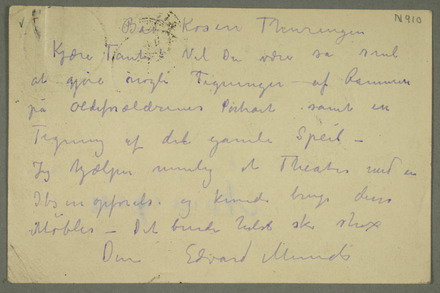 Bad Kosen Thuringen
N 910
Kjære Tante! Vil Du være så snil
at gjøre nogle Tegninger af Rammen
på Oldeforældrenes Portræt samt en
Tegning af det gamle Speil –
Jeg hjælper nemlig et Theater med en
Ibsenopførelse og kunde bruge disse
Møbler – Det burde helst ske strax
Din Edvard Munch